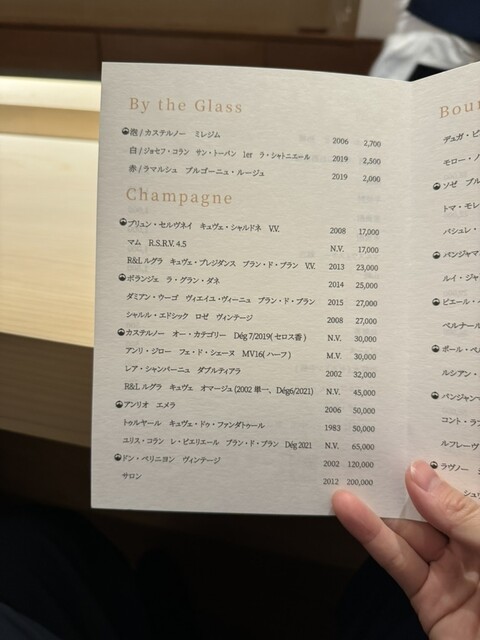 By the Glass
泡/カステルノー ミレジム 2006 2,700
白/ジョセフ・コラン サン・トーバン 1er ラ・シャトニエール 2019 2,500
赤/ラマルシュ ブルゴーニュ・ルージュ 2019 2,000
Champagne
ブリュン・セルヴネイ キュヴェ・シャルドネ V.V. 2008 17,000
マム R.S.R.V. 4.5 N.V. 17,000
R&L ルグラ キュヴェ・プレジダンス ブラン・ド・ブラン V.V. 2013 23,000
ボランジェ ラ・グラン・ダネ 2014 25,000
ダミアン・ウーゴ ヴィエイユ・ヴィーニュ ブラン・ド・ブラン 2015 27,000
シャルル・エドシック ロゼ ヴィンテージ 2008 27,000
カステルノー オー・カテゴリー Dég 7/2019( セロス香 ) N.V. 30,000
アンリ・ジロー フュ・ド・シェーヌ MV16( ハーフ ) M.V. 30,000
レア・シャンパーニュ ダブルティアラ 2002 32,000
R&L ルグラ キュヴェ オマージュ (2002 単一、Dég6/2021) N.V. 45,000
アンリオ エメラ 2006 50,000
トゥルヤール キュヴェ・ドゥ・ファンダトゥール 1983 50,000
ユリス・コラン レ・ピエリエール ブラン・ド・ブラン Dég 2021 N.V. 65,000
ドン・ペリニヨン ヴィンテージ 2002 120,000
サロン 2012 200,000
Bour
デュガ・ピ
モロー・ノ
ソゼ ブル
トマ・モレ
パシュレ・
バンジャマ
ルイ・ジャ
ピエール・
ベルナール
ポール・ペ
ルシアン・
バンジャマン
コント・ラフ
ルフレーヴ
ラヴノー
シュリ